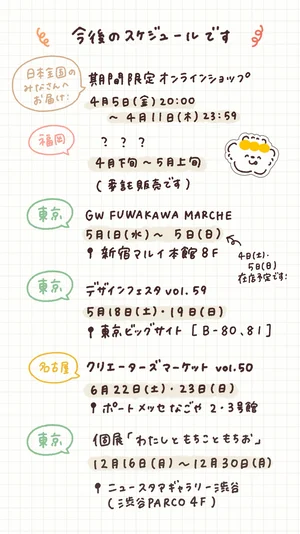 今後のスケジュールです
日本全国の
みなさんへ
お届け:
期間限定オンラインショップ
4月5日(金)20:00
～ 4月11日(木)23:59
福岡
? ? ?
4月下旬～5月上旬
(委託販売です)
東京
GW FUWAKAWA MARCHE
5月1日(水)～ 5日(日)
新宿マルイ本館8F
4日(土)・
5日(日)
在店予定です:
東京
デザインフェスタ vol.59
5月18日(土)・19日(日)
東京ビッグサイト [B-80、81]
名古屋
クリエーターズマーケット vol.50
6月22日(土)・23日(日)
ポートメッセなごや 2・3号館
東京
個展「わたしともちこともちお」
12月16日(月)～12月30日(月)
ニュースタアギャラリー渋谷
(渋谷PARCO 4F)